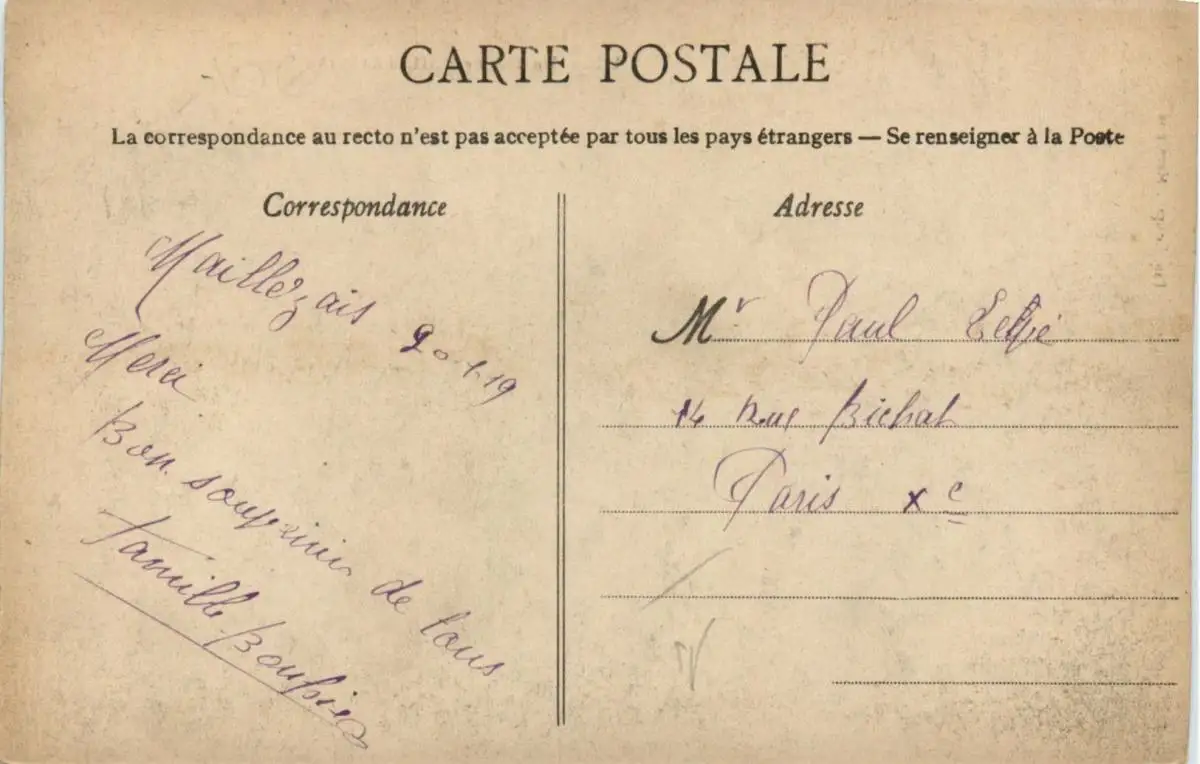 CARTE POSTALE
La correspondance au recto n'est pas acceptée par tous les pays étrangers — Se renseigner à la Poste
Correspondance
Maillezais 20-1-19
Merci
Bon de tous
Famille
Adresse
Mr Paul
14 Rue Bichat
Paris Xe